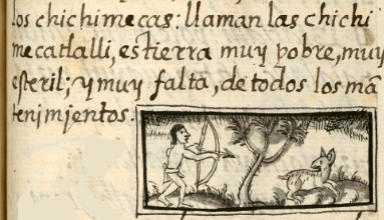 los chichimecas: llaman las chichi
mecatlalli, es tierra muy pobre, muy
esteril; y muy falta, de todos los mã
tenimjentos.